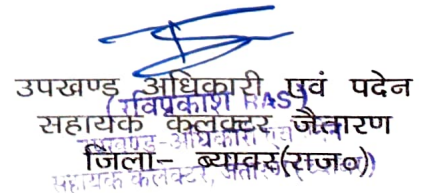 उपखण्ड अधिकारी एवं पदेन
(रविप्रकाश RAS)
सहायक कलक्टर जैतारण
उपखण्ड-अधिकारी एवं
जिला- ब्यावर(राज०)
सहायक कलेक्टर, जैतारण